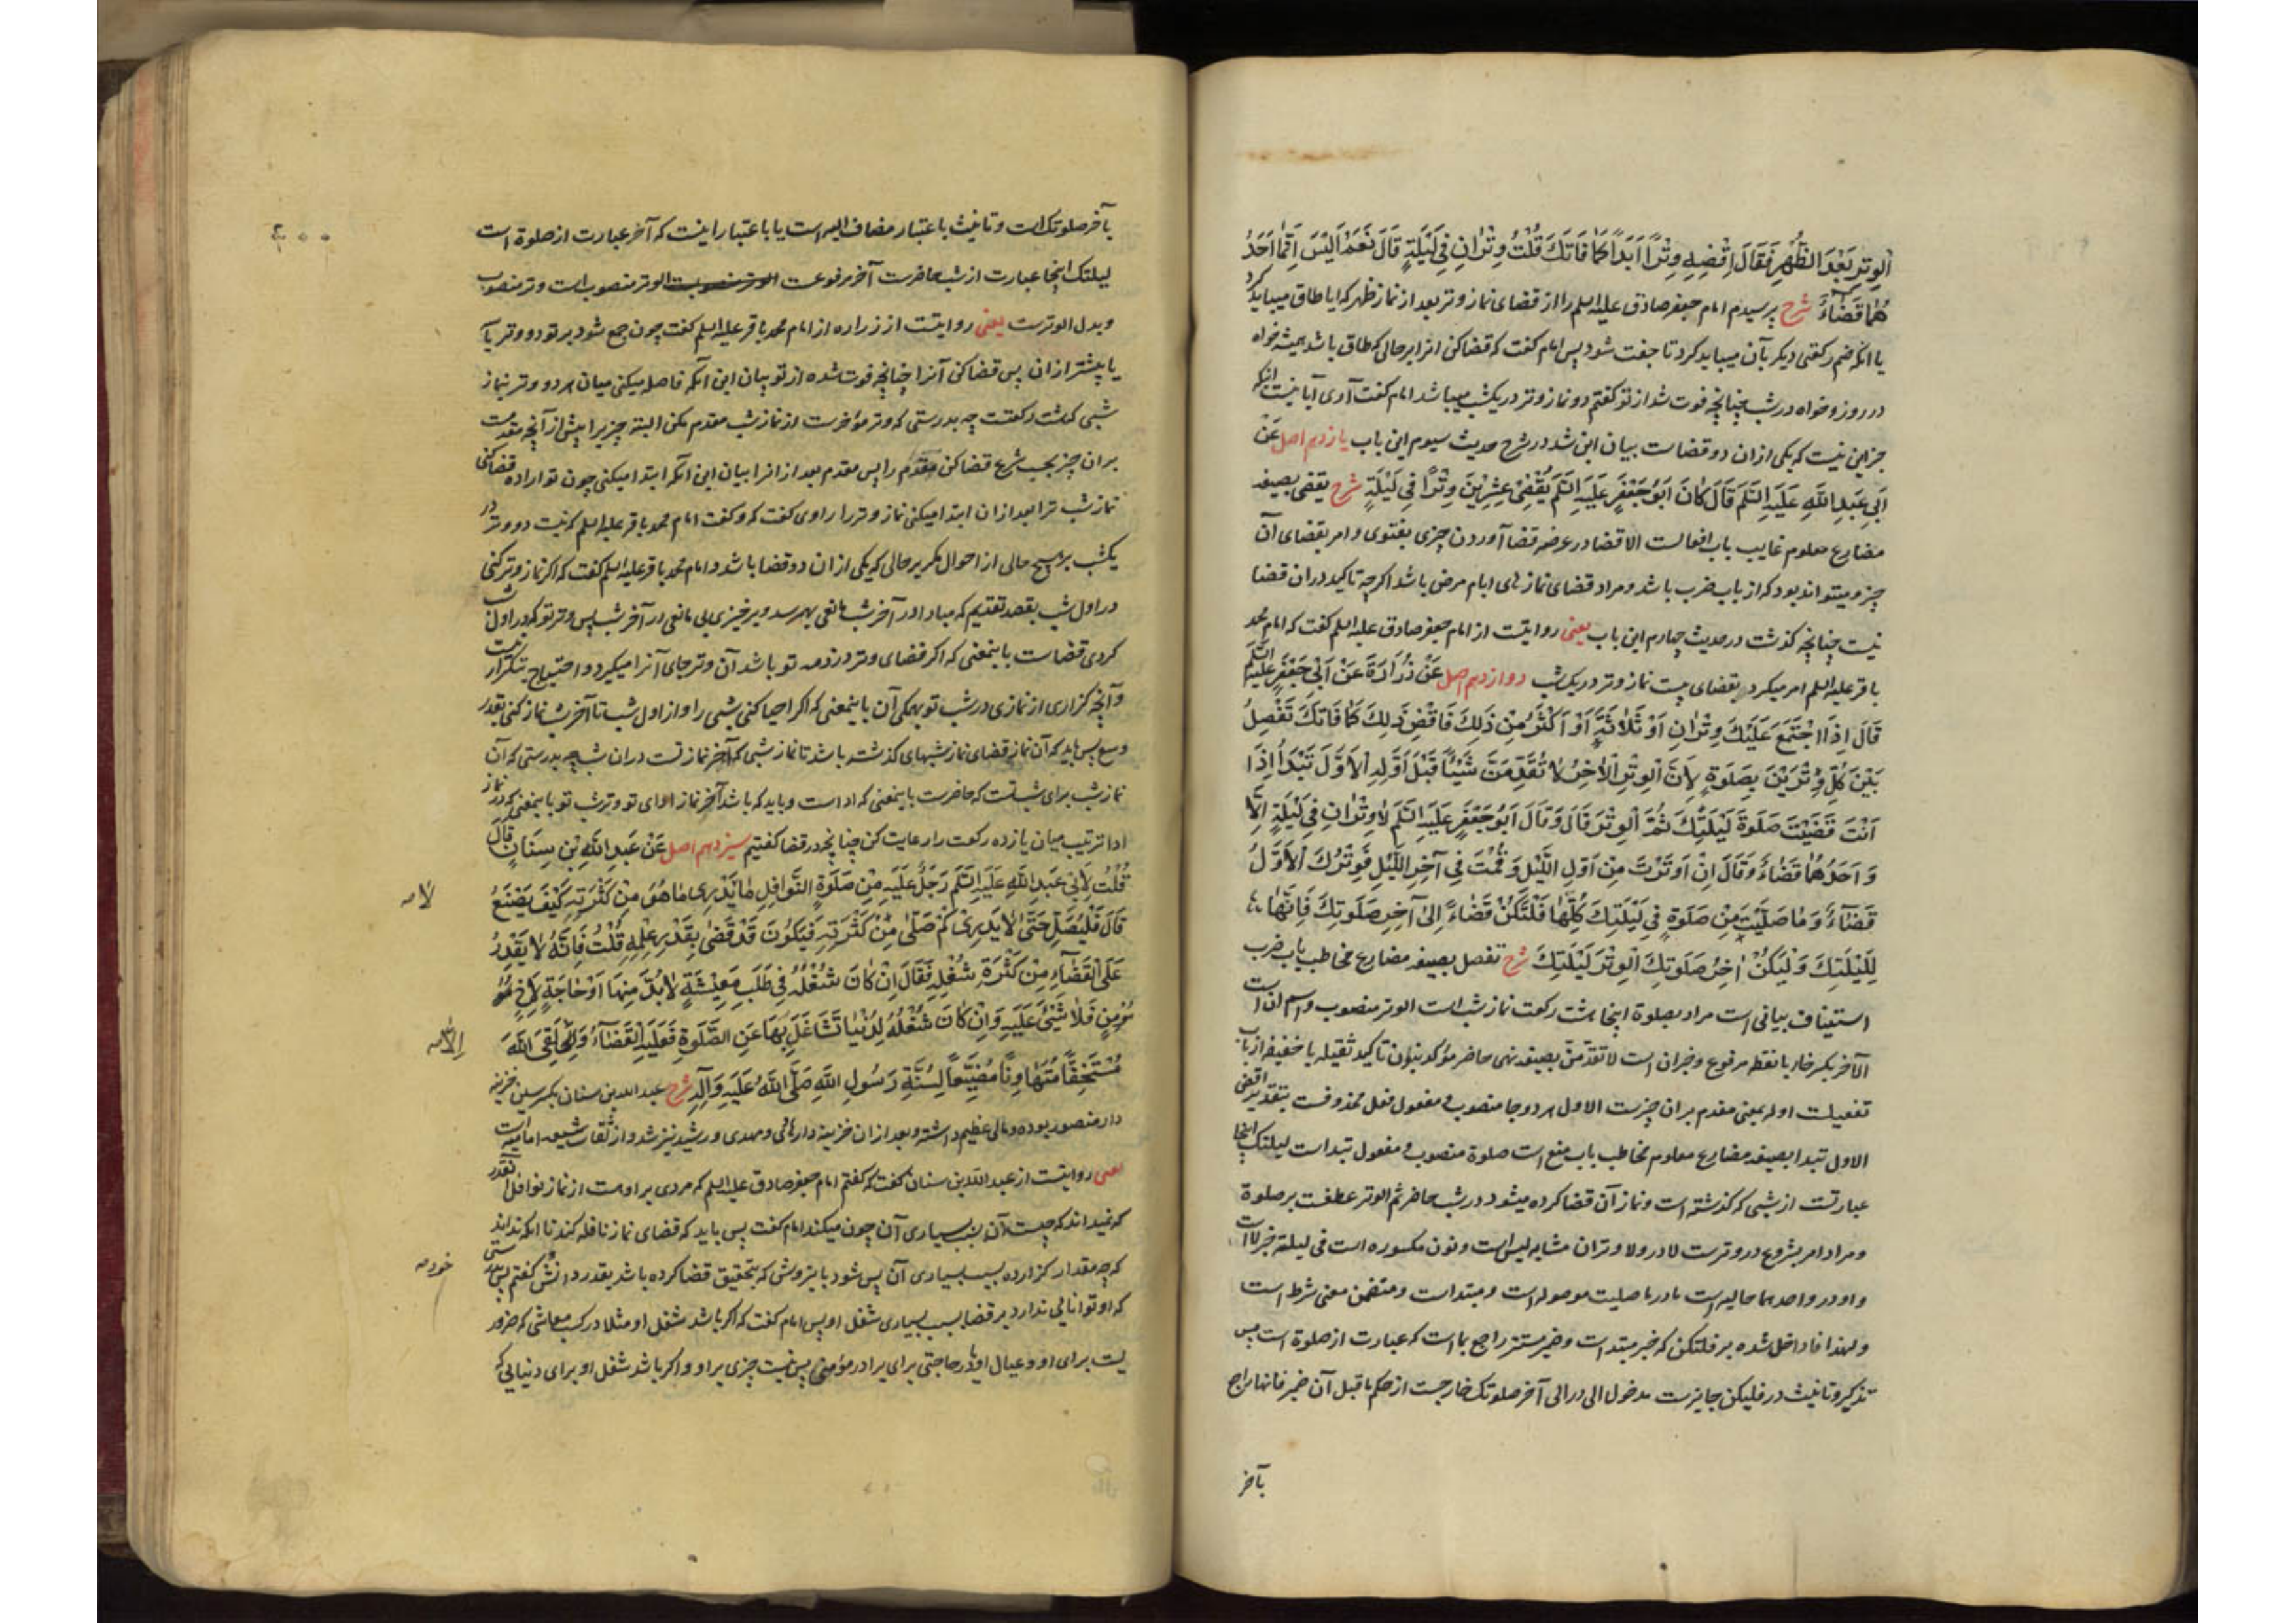 الْوِتْرِ بَعْدَ الظُّهْرِ فَقَالَ اِقْضِهِ وِتْرًا اَبَدًا كَمَا فَاتَكَ قُلْتُ وِتْرَانِ فِي لَيْلَةٍ قَالَ نَعَمْ اَلَيْسَ اِنَّمَا اَحَدُ
هُمَا قَضَاءٌ شرح پرسیدم امام جعفر صادق علیه السلم را از قضای نماز وتر بعد از نماز ظهر که ایا طاق میباید کرد
یا انکه ضم رکعتی دیکر بآن میباید کرد تا جفت شود پس امام کفت که قضا کن انرا بر حالی که طاق باشد همیشه خواه
در روز و خواه در شب چنانچه فوت شد از تو کفتم دو نماز وتر در یکشب میباشد امام کفت آری آیا نیست اینکه
جز این نیست که یکی ازان دو قضاست بیان این شد در شرح حدیث سیوم این باب یازدهم اصل عَنْ
اَبِي عَبْدِ اللَّهِ عَلَيْهِ السَّلَم قَالَ كَانَ اَبُو جَعْفَرٍ عَلَيْهِ السَّلَم يَقْضِي عِشْرِينَ وِتْرًا فِي لَيْلَةٍ شرح یقضی بصیغه
مضارع معلوم غایب باب افعالست الاقضا در عرضه قضا آوردن چیزی بفتوی و امر بقضای آن
چیز و میتواند بود که از باب ضرب باشد و مراد قضای نمازهای ایام مرض باشد اکرچه تاکید دران قضا
نیست چنانچه کذشت در حدیث چهارم این باب یعنی روایتست از امام جعفر صادق علیه السلم کفت که امام محمد
باقر علیه السلم امر میکرد بقضای بیست نماز وتر در یک شب دوازدهم اصل عَنْ زُرَارَةَ عَنْ اَبِي جَعْفَرٍ عَلَيْهِ السَّلَم
قَالَ اِذَا اجْتَمَعَ عَلَيْكَ وِتْرَانِ اَوْ ثَلَاثَةٌ اَوْ اَكْثَرُ مِنْ ذَلِكَ فَاقْضِ ذَلِكَ كَمَا فَاتَكَ تَفْصِلُ
بَيْنَ كُلِّ وِتْرَيْنِ بِصَلَوةٍ لِاَنَّ الْوِتْرَ الْآخِرُ لَا تُقَدِّمَنَّ شَيْئًا قَبْلَ اَوَّلِهِ الْاَوَّلَ تَبْدَأُ اِذَا
اَنْتَ قَضَيْتَ صَلَوةَ لَيْلَتِكَ ثُمَّ الْوِتْرَ قَالَ وَقَالَ اَبُو جَعْفَرٍ عَلَيْهِ السَّلَم لَا وِتْرَانِ فِي لَيْلَةٍ اِلَّا
وَ اَحَدُهُمَا قَضَاءٌ وَقَالَ اِنْ اَوْتَرْتَ مِنْ اَوَّلِ اللَّيْلِ وَقُمْتَ فِي آخِرِ اللَّيْلِ فَوِتْرُكَ الْاَوَّلُ
قَضَاءٌ وَمَا صَلَّيْتَ مِنْ صَلَوةٍ فِي لَيْلَتِكَ كُلِّهَا فَلْتَكُنْ قَضَاءً اِلَى آخِرِ صَلَوتِكَ فَاِنَّهَا
لِلَيْلَتِكَ وَلْيَكُنْ آخِرُ صَلَوتِكَ الْوِتْرَ لَيْلَتِكَ شرح تفصل بصیغه مضارع مخاطب باب ضرب
استیناف بیانی است مراد بصلوة اینجا هشت رکعت نماز شب است الوتر منصوب و اسم ان است
الآخر بکسر خاء با نقطه مرفوع و خبر ان است لا تقدمن بصیغه نهی حاضر مؤکد بنون تاکید ثقیله یا خفیفه از باب
تفعیلست اوله بمعنی مقدم بران چیزست الاول هر دو جا منصوب و مفعول فعل محذوفست بتقدیر اقض
الاول تبدا بصیغه مضارع معلوم مخاطب باب منع است صلوة منصوب و مفعول تبدا است لیلتک اینجا
عبارتست از شبی که کذشته است و نماز آن قضا کرده میشود در شب حاضر ثم الوتر عطفست بر صلوة
و مراد امر بشروع در وترست لا در ولا وتران مشابه لیس است و نون مکسوره است فی لیلة خبر لا است
واو در واحدهما حالیه است ما در ما صلیت موصوله است و مبتداست و متضمن معنی شرط است
و لهذا فا داخل شده بر فلتکن که خبر مبتداست و ضمیر مستتر راجع بما است که عبارت از صلوة است پس
تذکیر و تانیث در فلیکن جایزست مدخول الی در الی آخر صلوتک خارجست از حکم ما قبل آن ضمیر فانها راجع
بآخر
بآخر صلوتک است و تانیث باعتبار مضاف الیه است یا باعتبار اینست که آخر عبارت از صلوة است
لیلتک اینجا عبارت از شب حاضرست آخر مرفوعست الوتر منصوبست الوتر منصوب است و وتر منصوب
و بدل الوترست یعنی روایتست از زراره از امام محمد باقر علیه السلم کفت چون جمع شود بر تو دو وتر یا سه
یا پیشتر ازان پس قضا کن آنرا چنانچه فوت شده از تو بیان این آنکه فاصله میکنی میان هر دو وتر بنماز
شبی که هشت رکعتست چه بدرستی که وتر مؤخرست از نماز شب مقدم مکن البته چیزیرا پیش از آنچه مقدمست
بران چیز بحسب شرع قضا کن مقدم را پس مقدم بعد از انرا بیان این آنکه ابتدا میکنی چون تو اراده قضا کنی
نماز شب ترا بعد ازان ابتدا میکنی نماز وتر را راوی کفت که و کفت امام محمد باقر علیه السلم که نیست دو وتر در
یکشب بر هیچ حالی از احوال مکر بر حالی که یکی ازان دو قضا باشد و امام محمد باقر علیه السلم کفت که اکر نماز وتر کنی
در اول شب بقصد تقدیم که مبادا در آخر شب مانعی بهم رسد و برخیزی بی مانعی در آخر شب پس وتر تو که در اول شب
کردی قضاست باینمعنی که اکر قضای وتر در ذمه تو باشد آن وتر جای آنرا میکیرد و احتیاج بتکرار نیست
و آنچه کزاری از نمازی در شب تو همکی آن باینمعنی که اکر احیا کنی شبی را و از اول شب تا آخر شب نماز کنی بقدر
وسع پس باید که آن نماز قضای نماز شبهای کذشته باشد تا نماز شبی که آخر نماز تست دران شب چه بدرستی که آن
نماز شب برای شب تست که حاضرست باینمعنی که ادا است و باید که باشد آخر نماز ادای تو وتر شب تو باینمعنی که در نماز
ادا ترتیب میان یازده رکعت را رعایت کن چنانچه در قضا کفتیم سیزدهم اصل عَنْ عَبْدِ اللَّهِ بْنِ سِنَانٍ قَالَ
قُلْتُ لِاَبِي عَبْدِ اللَّهِ عَلَيْهِ السَّلَم رَجُلٌ عَلَيْهِ مِنْ صَلَوةِ النَّوَافِلِ مَا يَدْرِي مَا هُوَ مِنْ كَثْرَتِهِ كَيْفَ يَصْنَعُ
لا صه
قَالَ فَلْيُصَلِّ حَتَّى لَا يَدْرِيَ كَمْ صَلَّى مِنْ كَثْرَتِهِ فَيَكُونَ قَدْ قَضَى بِقَدْرِ عِلْمِهِ قُلْتُ فَاِنَّهُ لَا يَقْدِرُ
عَلَى الْقَضَاءِ مِنْ كَثْرَةِ شُغْلِهِ فَقَالَ اِنْ كَانَ شُغْلُهُ فِي طَلَبِ مَعِيشَةٍ لَا بُدَّ مِنْهَا اَوْ حَاجَةٍ لِاَخٍ مُؤ
مُؤْمِنٍ فَلَا شَيْءَ عَلَيْهِ وَاِنْ كَانَ شُغْلُهُ لِدُنْيَا تَشَاغَلَ بِهَا عَنِ الصَّلَوةِ فَعَلَيْهِ الْقَضَاءُ وَ لَقِيَ اللَّهَ
الا صه
مُسْتَخِفًّا مُتَهَاوِنًا مُضَيِّعًا لِسُنَّةِ رَسُولِ اللَّهِ صَلَّى اللَّهُ عَلَيْهِ وَآلِهِ شرح عبد الله بن سنان بکسر سین خزینه
دار منصور بوده و مالی عظیم داشته و بعد ازان خزینه دار هادی و مهدی و رشید نیز شد و از ثقات شیعه امامیه است
یعنی روایتست از عبد الله بن سنان کفت که کفتم امام جعفر صادق علیه السلم که مردی بر اوست از نماز نوافل آنقدر
که نمیداند که چیست آن بسبب بسیاری آن چون میکند امام کفت پس باید که قضای نماز نافله کند تا انکه نداند
که چه مقدار کزارده بسبب بسیاری آن پس شود باینروش که بتحقیق قضا کرده باشد بقدر دانش کفتم پس بدرستی
خود صه
که او توانائی ندارد بر قضا بسبب بسیاری شغل او پس امام کفت که اکر باشد شغل او مثلا در کسب معاشی که ضرور
یست برای او و عیال او یا در حاجتی برای برادر مؤمنی پس نیست چیزی بر او و اکر باشد شغل او برای دنیایی که